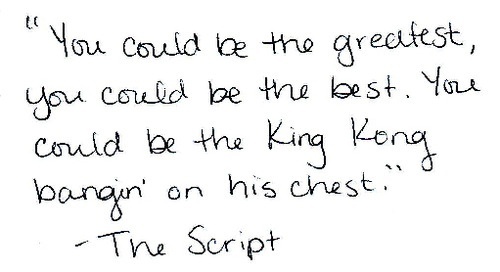 "You could be the greatest,
you could be the best. You
could be the King Kong
bangin' on his chest."
- The Script